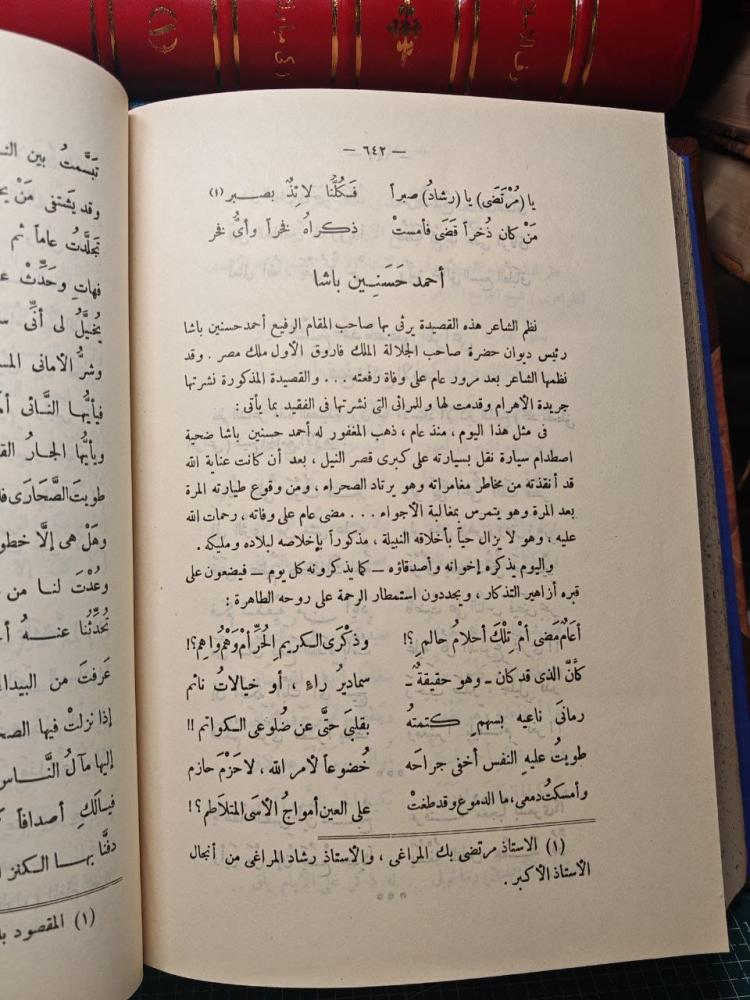 — ٦٤٢ —
يا (مُرْتَضَى) يا (رشادُ) صبراً فـكلُّنا لائِذٌ بصبـر (١)
مَنْ كان ذُخراً قَضَى فأمستْ ذكراهُ فخراً وأىُّ فخر
أحمد حَسَنِـين باشا
نظم الشاعر هذه القصيدة يرثى بها صاحب المقام الرفيع أحمد حسنين باشا
رئيس ديوان حضرة صاحب الجلالة الملك فاروق الأول ملك مصر . وقد
نظمها الشاعر بعد مرور عام على وفاة رفعته . . . والقصيدة المذكورة نشرتها
جريدة الأهرام وقدمت لها وللمراثى التى نشرتها فى الفقيد بما يأتى :
فى مثل هذا اليوم ، منذ عام ، ذهب المغفور له أحمد حسنين باشا ضحية
اصطدام سيارة نقل بسيارته على كبرى قصر النيل ، بعد أن كانت عناية الله
قد أنقذته من مخاطر مغامراته وهو يرتاد الصحراء ، ومن وقوع طيارته المرة
بعد المرة وهو يتمرس بمغالبة الأجواء . . . مضى عام على وفاته ، رحمات الله
عليه ، وهو لا يزال حياً بأخلاقه النبيلة ، مذكوراً بإخلاصه لبلاده ومليكه .
واليوم يذكره إخوانه وأصدقاؤه — كما يذكرونه كل يوم — فيضعون على
قبره أزاهير التذكار ، ويجددون استمطار الرحمة على روحه الطاهرة :
أعامٌ مَضى أمْ تِلْكَ أحلامُ حالمِ ؟! وذكْرَى الـكريمِ الحُرِّ أمْ وَهْمُ واهِمِ ؟!
كأنَّ الذى قد كان ــ وهو حقيقةٌ ــ سماديرُ راءٍ ، أو خيالاتُ نائم
رمانىَ ناعيه بسهمٍ كتمتهُ بقلبىَ حتَّى عن ضُلوعى الـكواتم !!
طويتُ عليهِ النفس أخفى جراحَه خُضوعاً لأمر الله ، لا حَزْمَ حازم
وأمسكتُ دمعى ، ما الدموع وقد طغتْ على العين أمواجُ الأسَى المتلاطم ؟!
(١) الاستاذ مرتضى بك المراغى ، والأستاذ رشاد المراغى من أنجال
الأستاذ الأكبر .
تَبَسَّمتُ بين
وقد يَشتفى مَنْ
تجلَّدتُ عاماً ثم
فهاتِ وحَدِّثْ
يُخيَّلُ لى أنِّى
وشرُّ الأمانى
فيأيُّها النَّائى
ويأيُّها الجارُ
طويتَ الصَّحارَى
وهَلْ هى إلَّا
وعُدْتَ لنـا من
تُحدِّثُنا عنـه
عَرفتَ من
إذا نزلتْ فيها
إليها مآلُ النَّاس
فيـالَكِ أصدافاً
دفنَّا بهـا الكنز
(١) المقصود
(١)